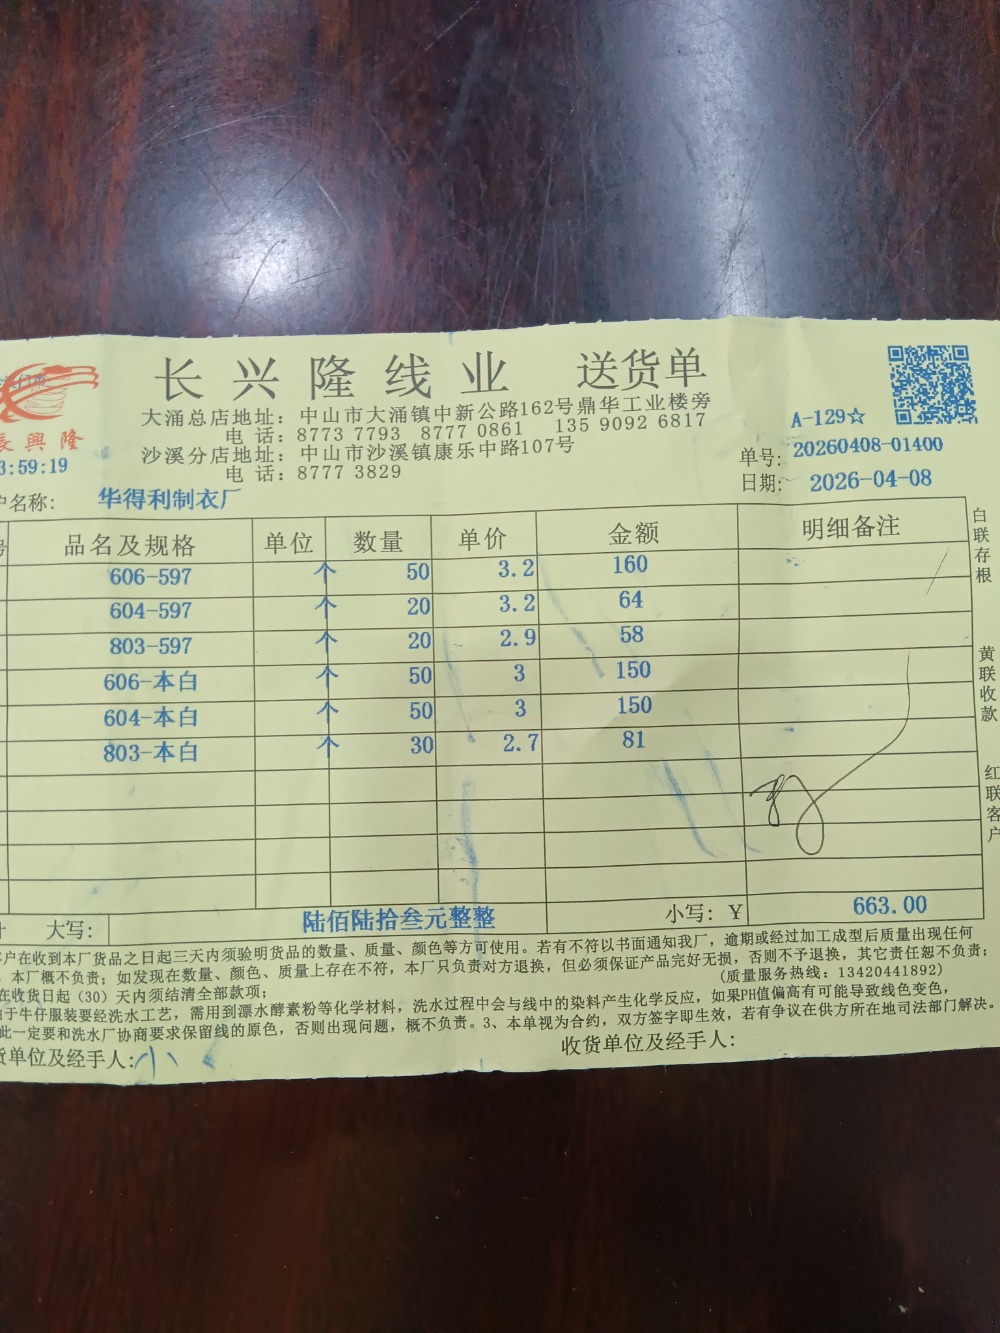 长兴隆线业 送货单
大涌总店地址：中山市大涌镇中新公路162号鼎华工业楼旁
电 话：8773 7793 8777 0861 135 9092 6817
沙溪分店地址：中山市沙溪镇康乐中路107号
电 话：8777 3829
長興隆
3:59:19
A-129☆
单号：20260408-01400
日期：2026-04-08
户名称：华得利制衣厂
号 品名及规格 单位 数量 单价 金额 明细备注
606-597 个 50 3.2 160
604-597 个 20 3.2 64
803-597 个 20 2.9 58
606-本白 个 50 3 150
604-本白 个 50 3 150
803-本白 个 30 2.7 81
计 大写：陆佰陆拾叁元整整 小写：Y 663.00
白联存根
黄联收款
红联客户
客户在收到本厂货品之日起三天内须验明货品的数量、质量、颜色等方可使用。若有不符以书面通知我厂，逾期或经过加工成型后质量出现任何
，本厂概不负责；如发现在数量、颜色、质量上存在不符，本厂只负责对方退换，但必须保证产品完好无损，否则不予退换，其它责任恕不负责；
在收货日起（30）天内须结清全部款项； (质量服务热线：13420441892)
由于牛仔服装要经洗水工艺，需用到漂水酵素粉等化学材料，洗水过程中会与线中的染料产生化学反应，如果PH值偏高有可能导致线色变色，
此一定要和洗水厂协商要求保留线的原色，否则出现问题，概不负责。3、本单视为合约，双方签字即生效，若有争议在供方所在地司法部门解决。
货单位及经手人：小 收货单位及经手人：